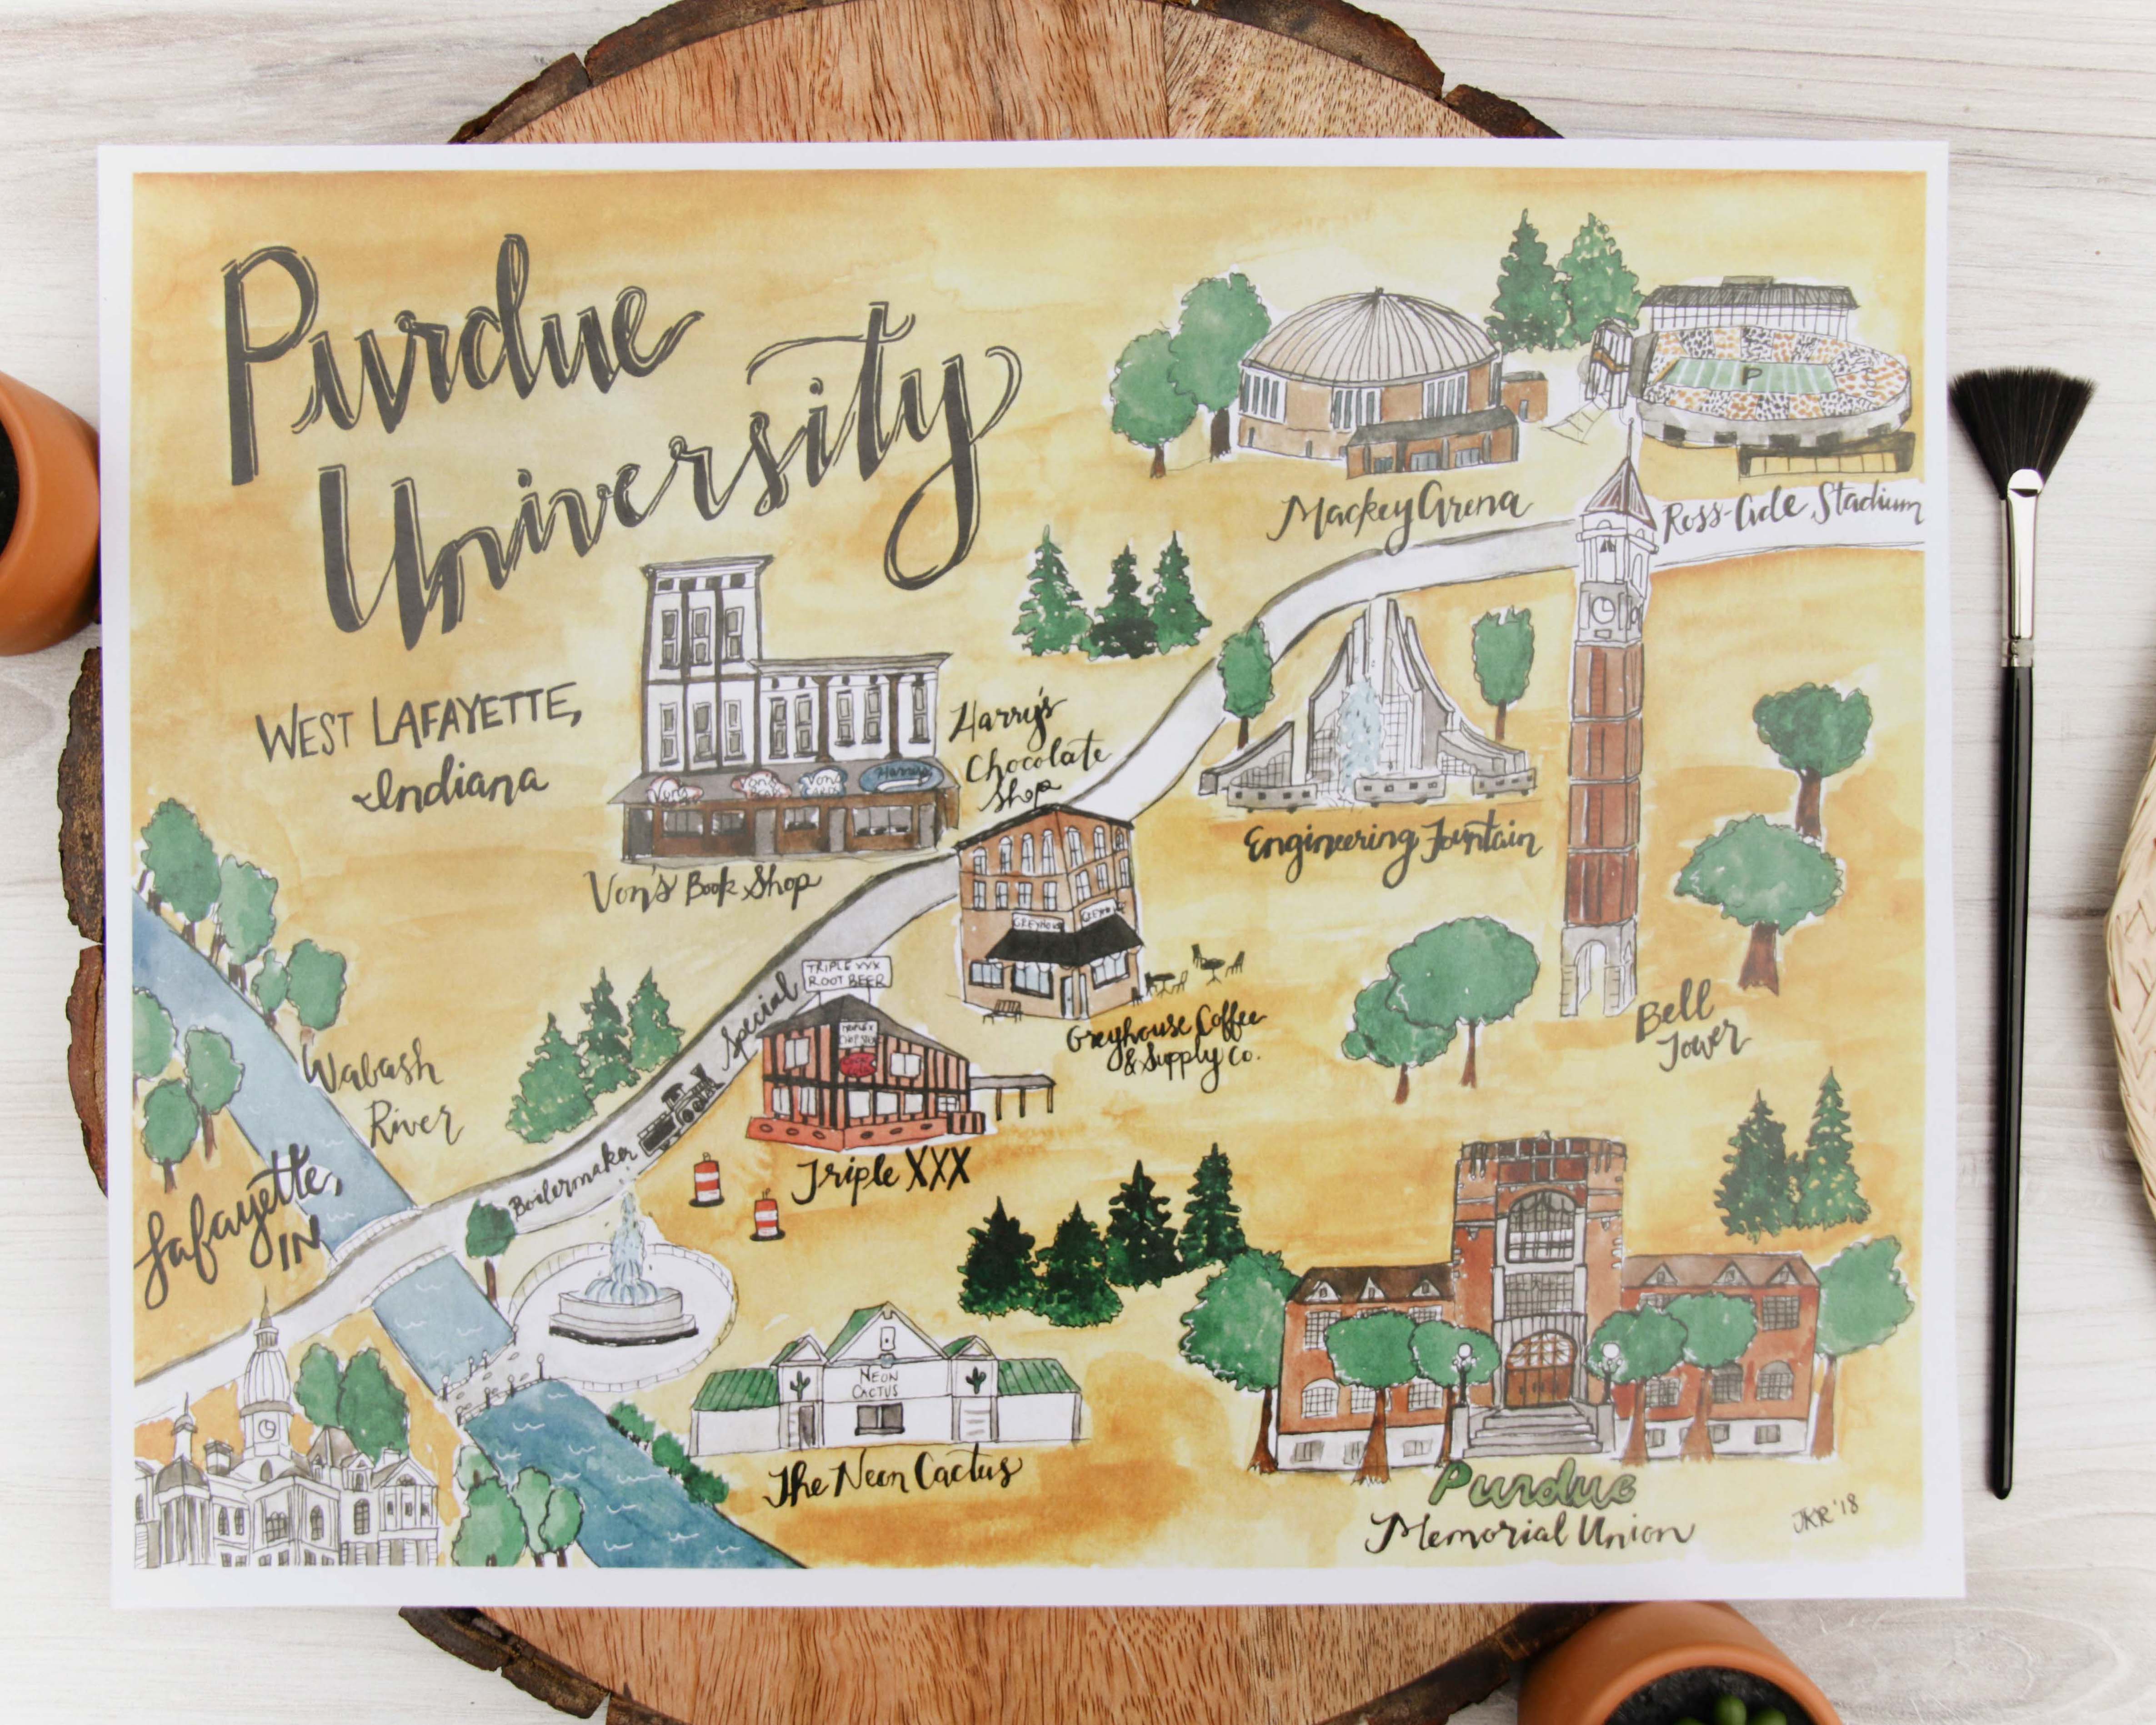 Purdue
University
WEST LAFAYETTE,
Indiana
Mackey Arena
Ross-Ade Stadium
P
Harry's
Chocolate
Shop
Von's
Von's
Harry's
Von's Book Shop
Engineering Fountain
GREYHOUSE
Greyhouse Coffee
& Supply Co.
Bell
Tower
Wabash
River
Lafayette,
IN
Boilermaker Special
TRIPLE XXX
ROOT BEER
Triple XXX
NEON
CACTUS
The Neon Cactus
Purdue
Memorial Union
JKR '18